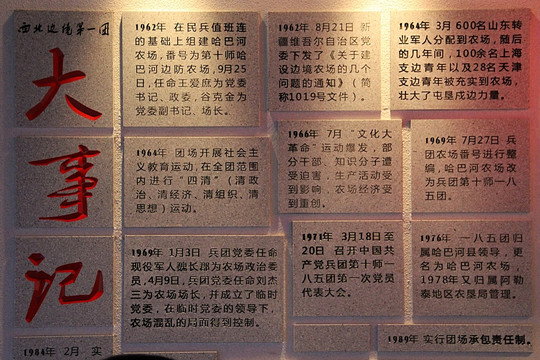 西北边缘第一团
大
事
记
1962年 在民兵值班连
的基础上组建哈巴河
农场，番号为第十师哈
巴河边防农场，9月25
日，任命王爱庶为党委
书记、政委，谷克金为
党委副书记、场长。
1962年 8月21日 新
疆维吾尔自治区党
委下发了《关于建
设边境农场的几个
问题的通知》（简
称1019号文件）。
1964年 3月 600名山东转
业军人分配到农场，随后
的几年间，100余名上海
支边青年以及28名天津
支边青年被充实到农场，
壮大了屯垦戍边力量。
1964年 团场开展社会主
义教育运动，在全团范围
内进行“四清”（清政
治、清经济、清组织、清
思想）运动。
1966年 7月 “文化大
革命”运动爆发，部
分干部、知识分子遭
受迫害，生产活动受
到影响，农场经济受
到重创。
1969年 7月27日 兵
团农场番号进行整
编，哈巴河农场改
为兵团第十师一八
五团。
1969年 1月3日 兵团党委任命
现役军人魏长郡为农场政治委
员，4月9日，兵团党委任命刘杰
三为农场场长，并成立了临时
党委，在临时党委的领导下，
农场混乱的局面得到控制。
1971年 3月18日至
20日 召开中国共
产党兵团第十师一
八五团第一次党员
代表大会。
1976年 一八五团归
属哈巴河县领导，更
名为哈巴河农场，
1978年又归属阿勒
泰地区农垦局管理。
1984年 2月 实
1989年 实行团场承包责任制。